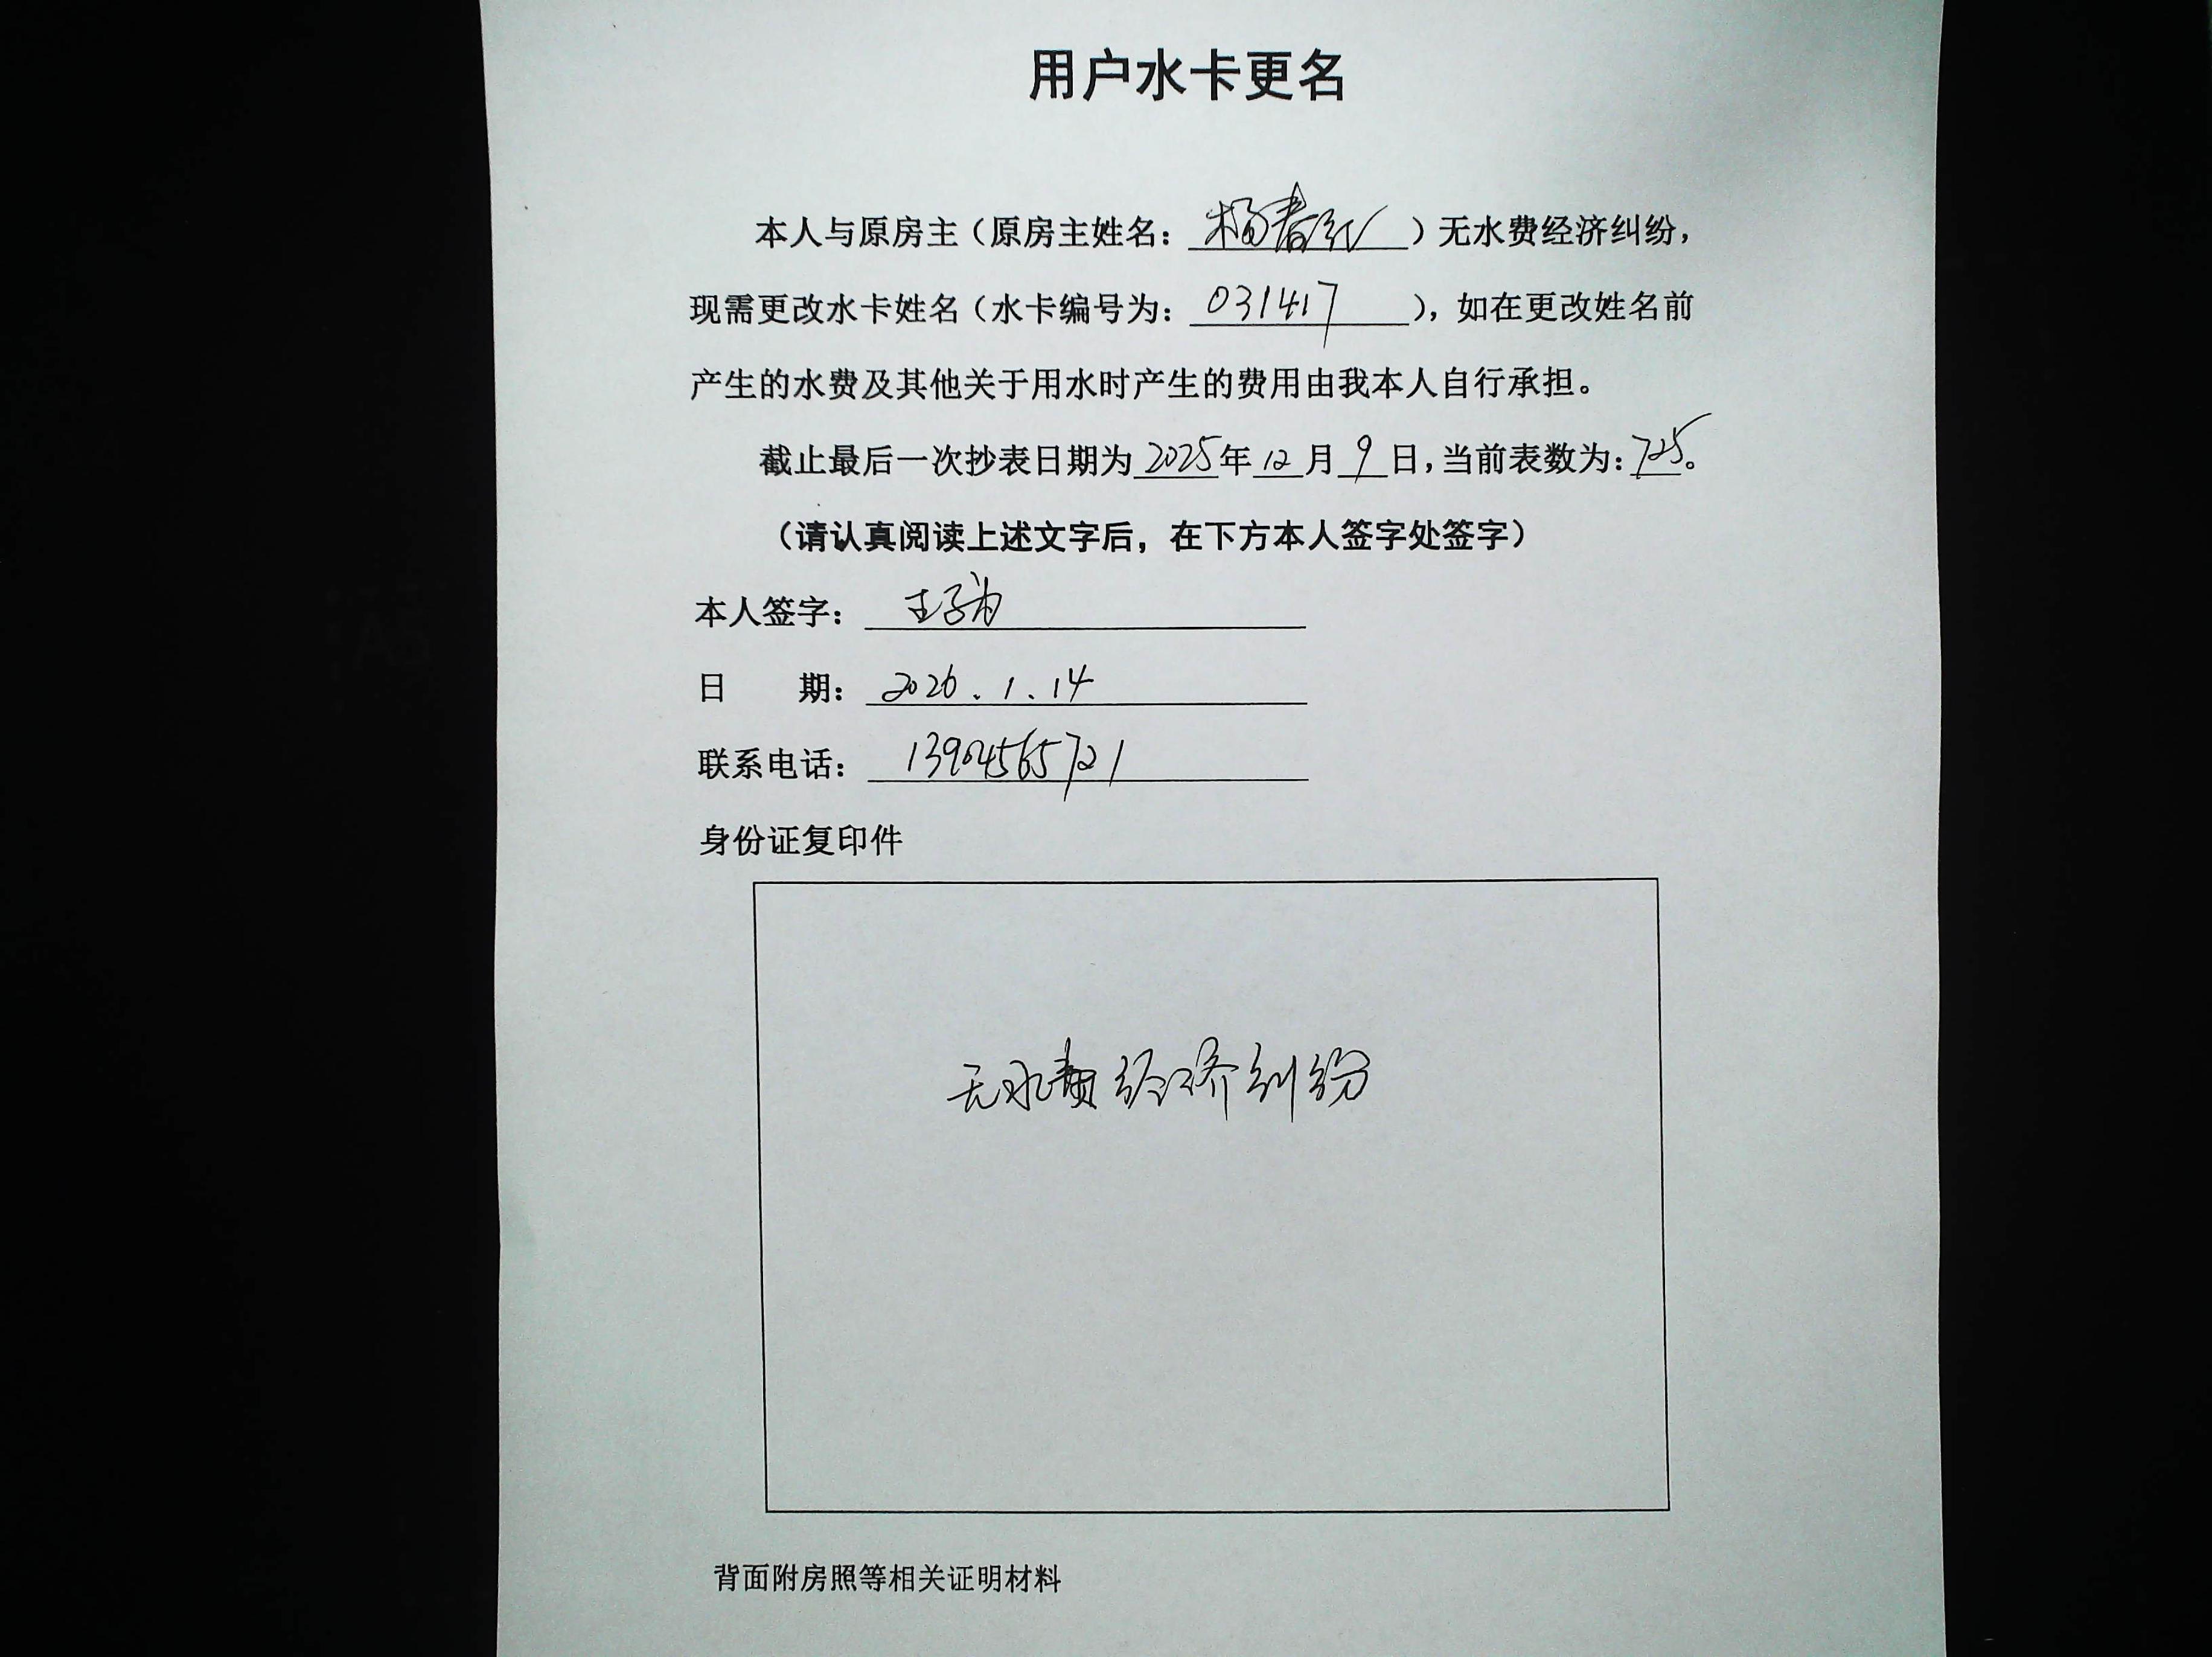 用户水卡更名
本人与原房主（原房主姓名：杨春红）无水费经济纠纷，
现需更改水卡姓名（水卡编号为：031417），如在更改姓名前
产生的水费及其他关于用水时产生的费用由我本人自行承担。
截止最后一次抄表日期为2025年12月9日，当前表数为：725。
（请认真阅读上述文字后，在下方本人签字处签字）
本人签字：王子为
日 期：2026.1.14
联系电话：13904565721
身份证复印件
无水费经济纠纷
背面附房照等相关证明材料